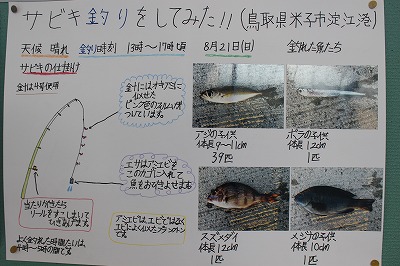 サビキ釣りをしてみた!!(鳥取県米子市淀江港)
天候 晴れ 釣り時刻 13時〜17時頃 8月21日(日) 釣れた魚たち
サビキの仕掛け
金針は4号使用
金針にはオキアミに
似せた
ピンク色のスキムが
ついています。
エサはアミエビを
このカゴに入れて
魚をおびきよせます
当たりがきたら
リールをすこしまいて
ひきあげます。
よく釣れた時間たいは
4時〜5時の間です。
アミエビは、エビではなく
エビによくにたプランクトン
です。
アジの子供
体長9〜11cm
39匹
ボラの子供
体長12cm
1匹
スズメダイ
体長12cm
1匹
メジナの子供
体長10cm
1匹